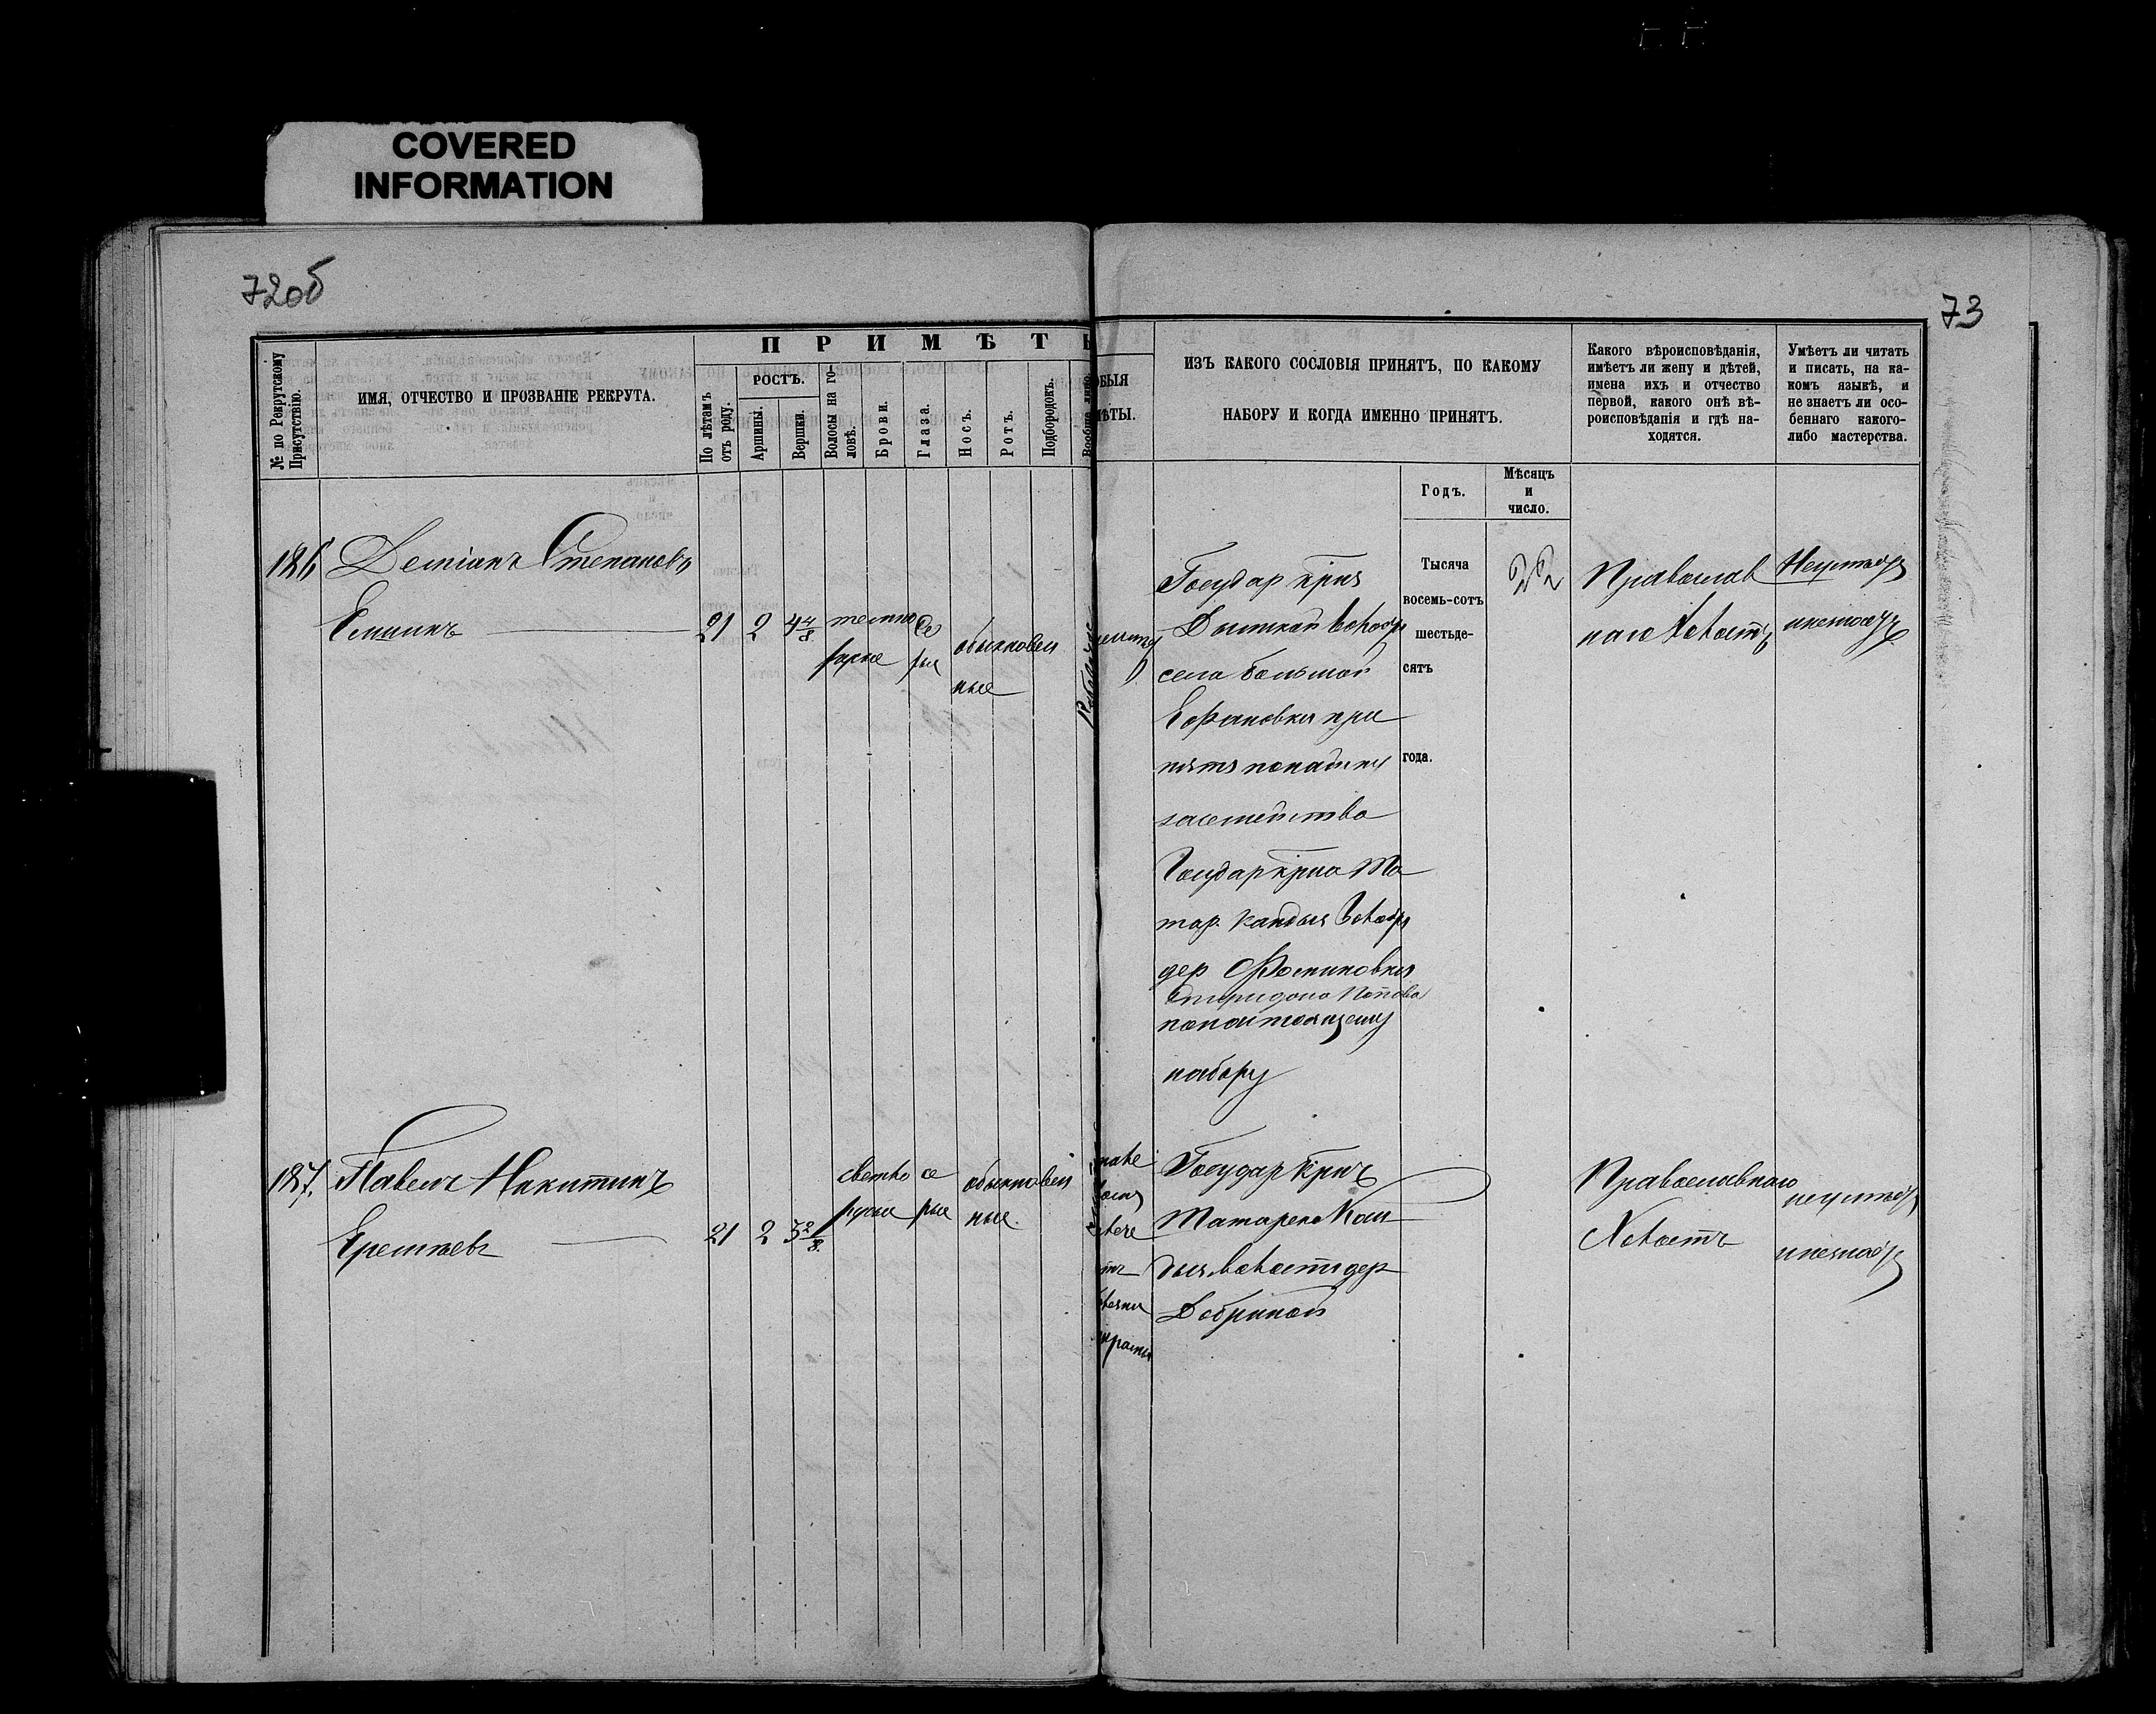 COVERED
INFORMATION
72об
73
№ по Рекрутскому
Присутствію.
ИМЯ, ОТЧЕСТВО И ПРОЗВАНІЕ РЕКРУТА.
ПРИМѢТЫ
По лѣтамъ
отъ роду.
РОСТЪ.
Аршины.
Вершки.
Волосы на го-
ловѣ.
Брови.
Глаза.
Носъ.
Ротъ.
Подбородокъ.
Вообще лицо.
ОБЫЯ
МѢТЫ.
ИЗЪ КАКОГО СОСЛОВІЯ ПРИНЯТЪ, ПО КАКОМУ
НАБОРУ И КОГДА ИМЕННО ПРИНЯТЪ.
Годъ.
Мѣсяцъ
и
число.
Какого вѣроисповѣданія,
имѣетъ ли жену и дѣтей,
имена ихъ и отчество
первой, какого онѣ вѣ-
роисповѣданія и гдѣ на-
ходятся.
Умѣетъ ли читать
и писать, на ка-
комъ языкѣ, и
не знаетъ ли осо-
беннаго какого-
либо мастерства.
186
Деміанъ Степановъ
21 2 4 4/8
темно
русые
се
рые
обыкновен
ные
Государ крия
села большой
Ефановки при
нятъ
засемейства
Государ криа Та
тар. Кандыз
дер Фоминовки
Спиридона Попова
понастоящему
набору
Тысяча
восемь-сотъ
шестьде-
сятъ
года.
22
Православ
наго Холостъ
187.
Павелъ Никитинъ
21 2 3 2/8
светло
русые
се
рые
обыкновен
ные.
Государ Крия
Татарско Кан
дыз. волости дер
Добриной
Православнаго
Холостъ